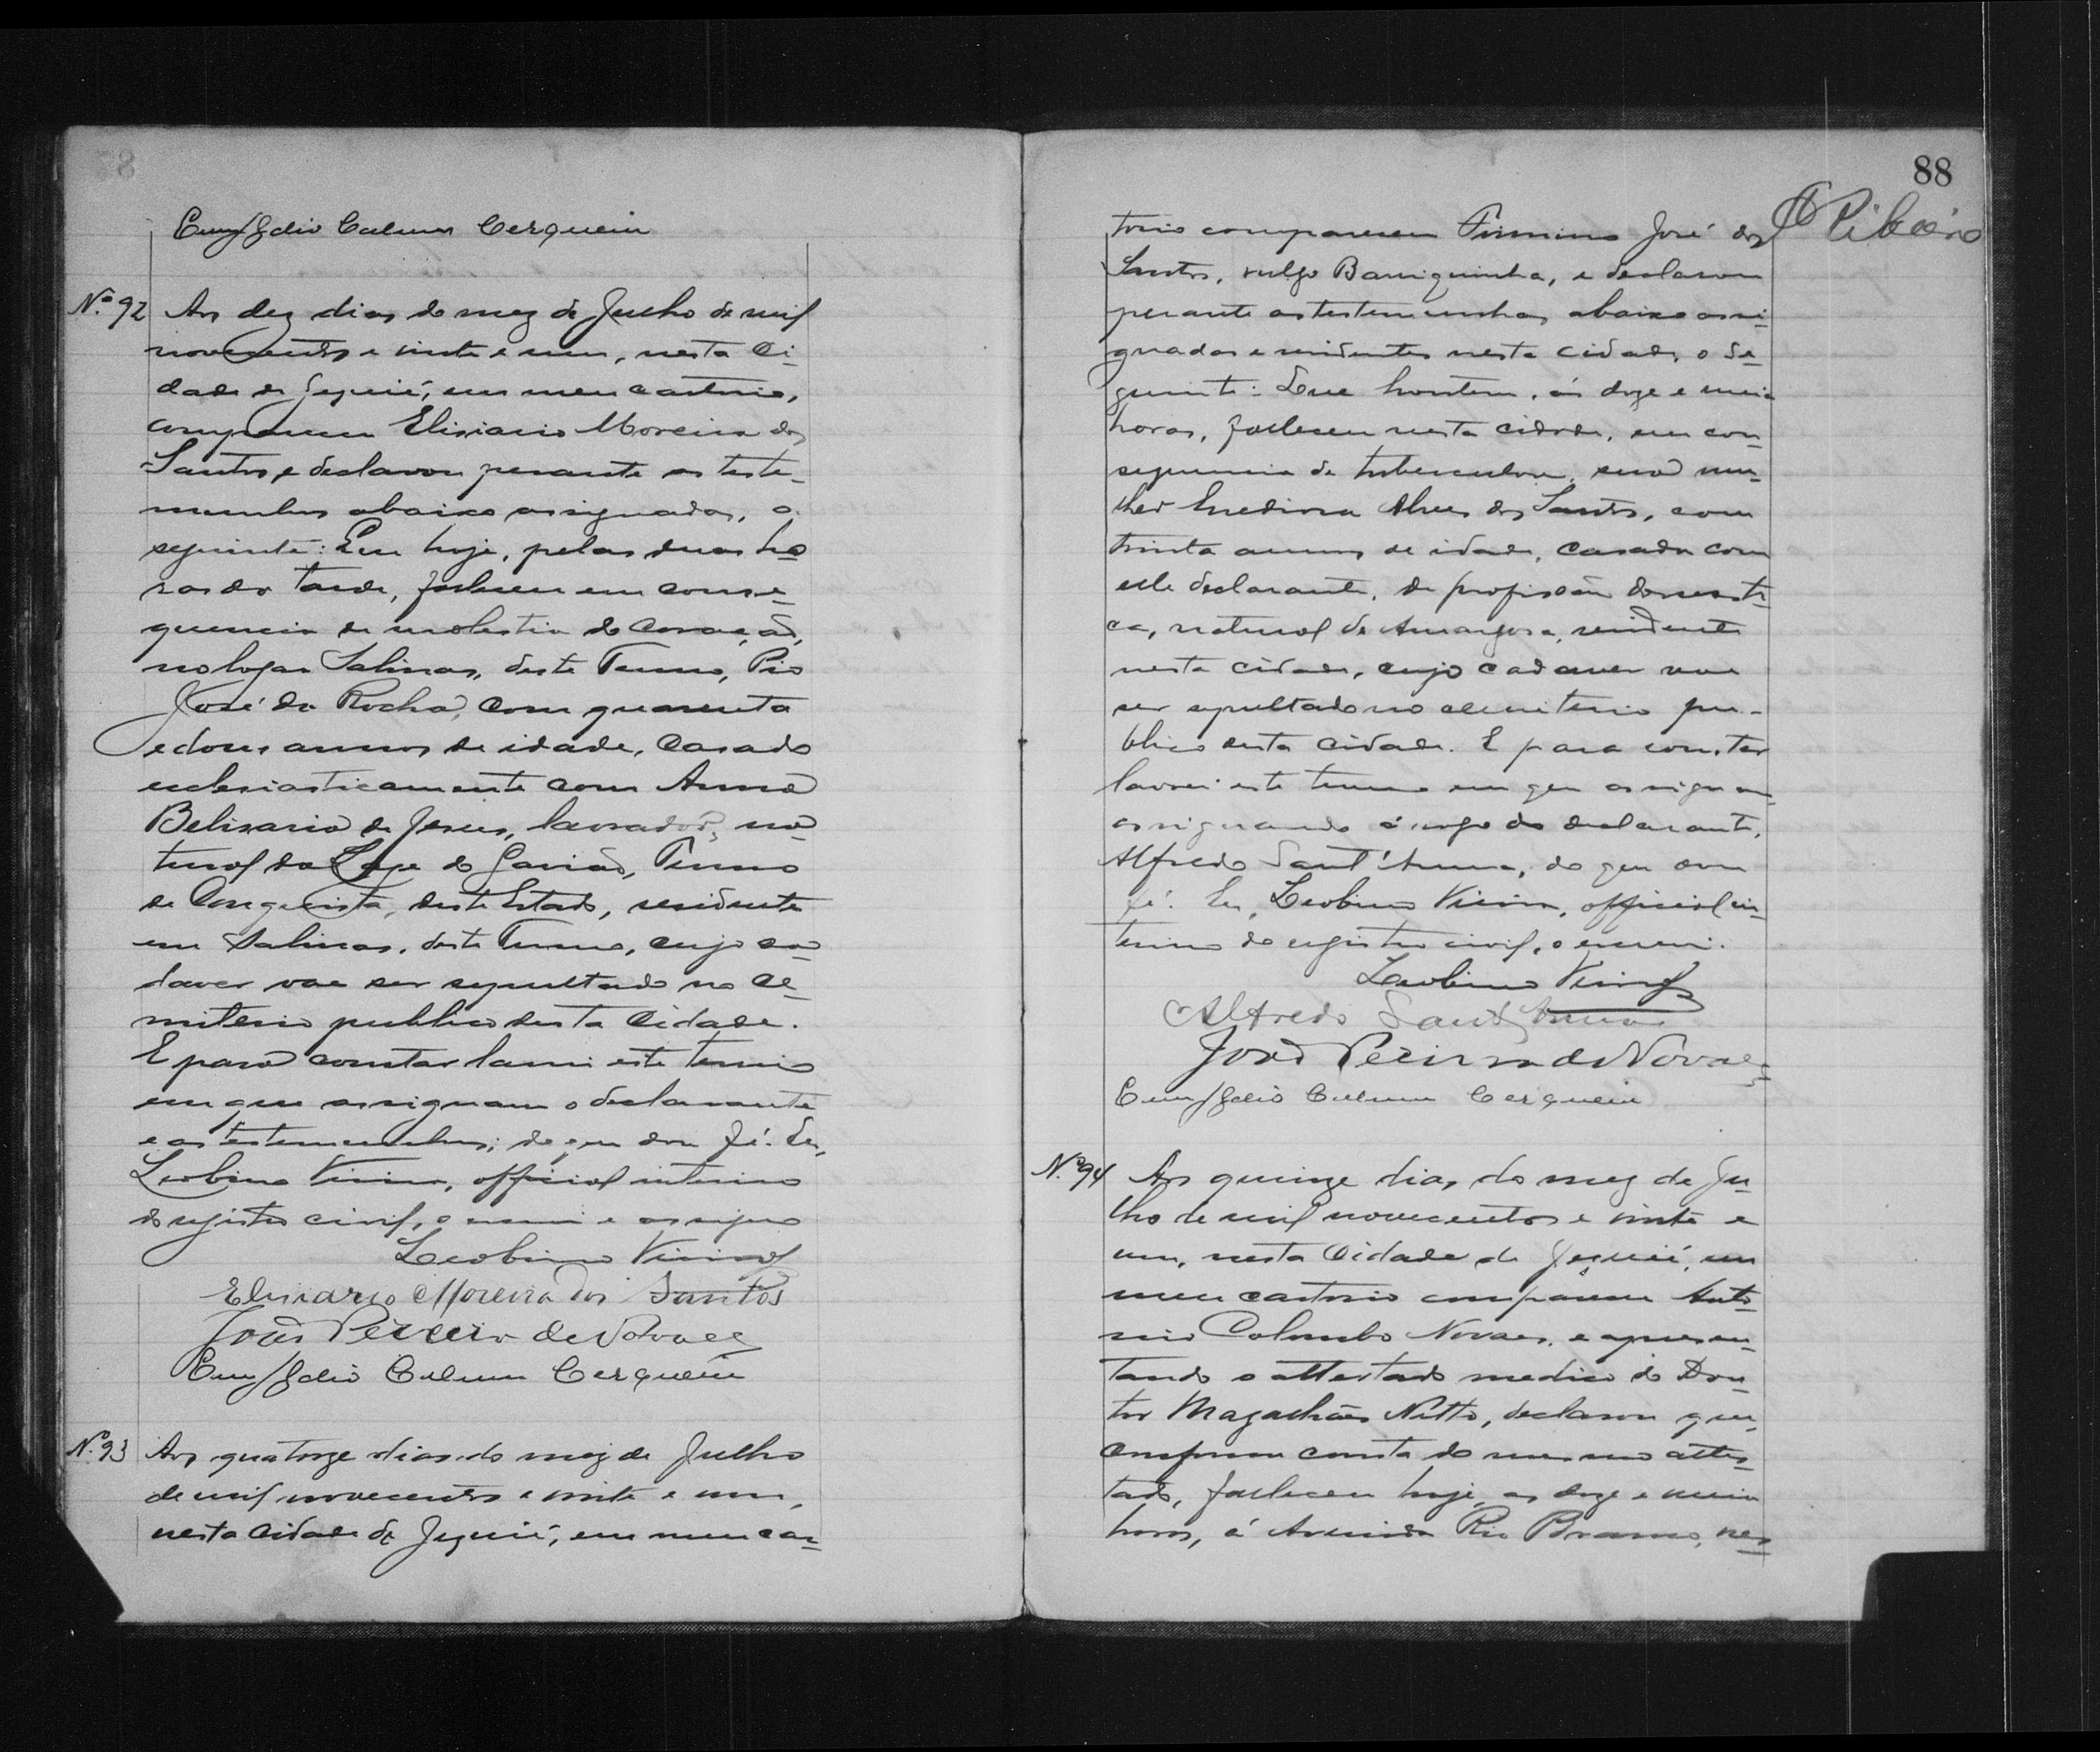 Cerqueira
Nº 92 Aos dez dias do mez de Julho de mil
novecentos e vinte e um, nesta Ci-
dade de Jequié, em meu cartorio,
compareceu Elisiario Moreira dos
Santos e declarou perante as teste-
munhas abaixo assignadas, o
seguinte: Que hoje, pelas duas ho-
ras da tarde, falleceu em conse-
quencia de molestia do coração,
no logar Salinas, deste Termo, Pio
José da Rocha, com quarenta
e dous annos de idade, casado
ecclesiasticamente com Anna
Belisaria de Jesus, lavrador, na-
tural da Lage do Gavião, Termo
de Conquista, deste Estado, residente
em Salinas, deste Termo, cujo ca-
daver vae ser sepultado no ce-
miterio publico desta Cidade.
E para constar lavrei este termo
em que assignam o declarante
e as testemunhas; do que dou fé. Eu,
Leobino Vieira, official interino
do registro civil, o escrevi e assigno
Leobino Vieira
Elisiario Moreira dos Santos
João Pereira de Novaes
Cerqueira
Nº 93 Aos quatorze dias do mez de Julho
de mil novecentos e vinte e um,
nesta Cidade de Jequié, em meu car-
88
Ribeiro
torio compareceu Firmino José dos
Santos, vulgo Barriguinha, e declarou
perante as testemunhas abaixo assi-
gnadas e residentes nesta cidade, o se-
guinte: Que hontem, ás doze e meia
horas, falleceu nesta cidade, em con-
sequencia de tuberculose, sua mu-
lher Alves dos Santos, com
trinta annos de idade, casada com
elle declarante, de profissão domesti-
ca, natural de Amargosa, residente
nesta cidade, cujo cadaver vae
ser sepultado no cemiterio pu-
blico desta cidade. E para constar
lavrei este termo em que assignam
assignando á rogo do declarante,
Alfredo Sant'Anna, do que dou
fé. Eu, Leobino Vieira, official in-
terino do registro civil, o escrevi.
Leobino Vieira
Alfredo Sant'Anna
João Pereira de Novaes
Cerqueira
Nº 94 Aos quinze dias do mez de Ju-
lho de mil novecentos e vinte e
um, nesta Cidade de Jequié, em
meu cartorio compareceu Anto-
nio Colombo Novaes, e apresen-
tando o attestado medico do Dou-
tor Magalhães Netto, declarou que,
conforme consta do mesmo attes-
tado, falleceu hoje, as doze e meia
horas, á Avenida Rio Branco, nes-